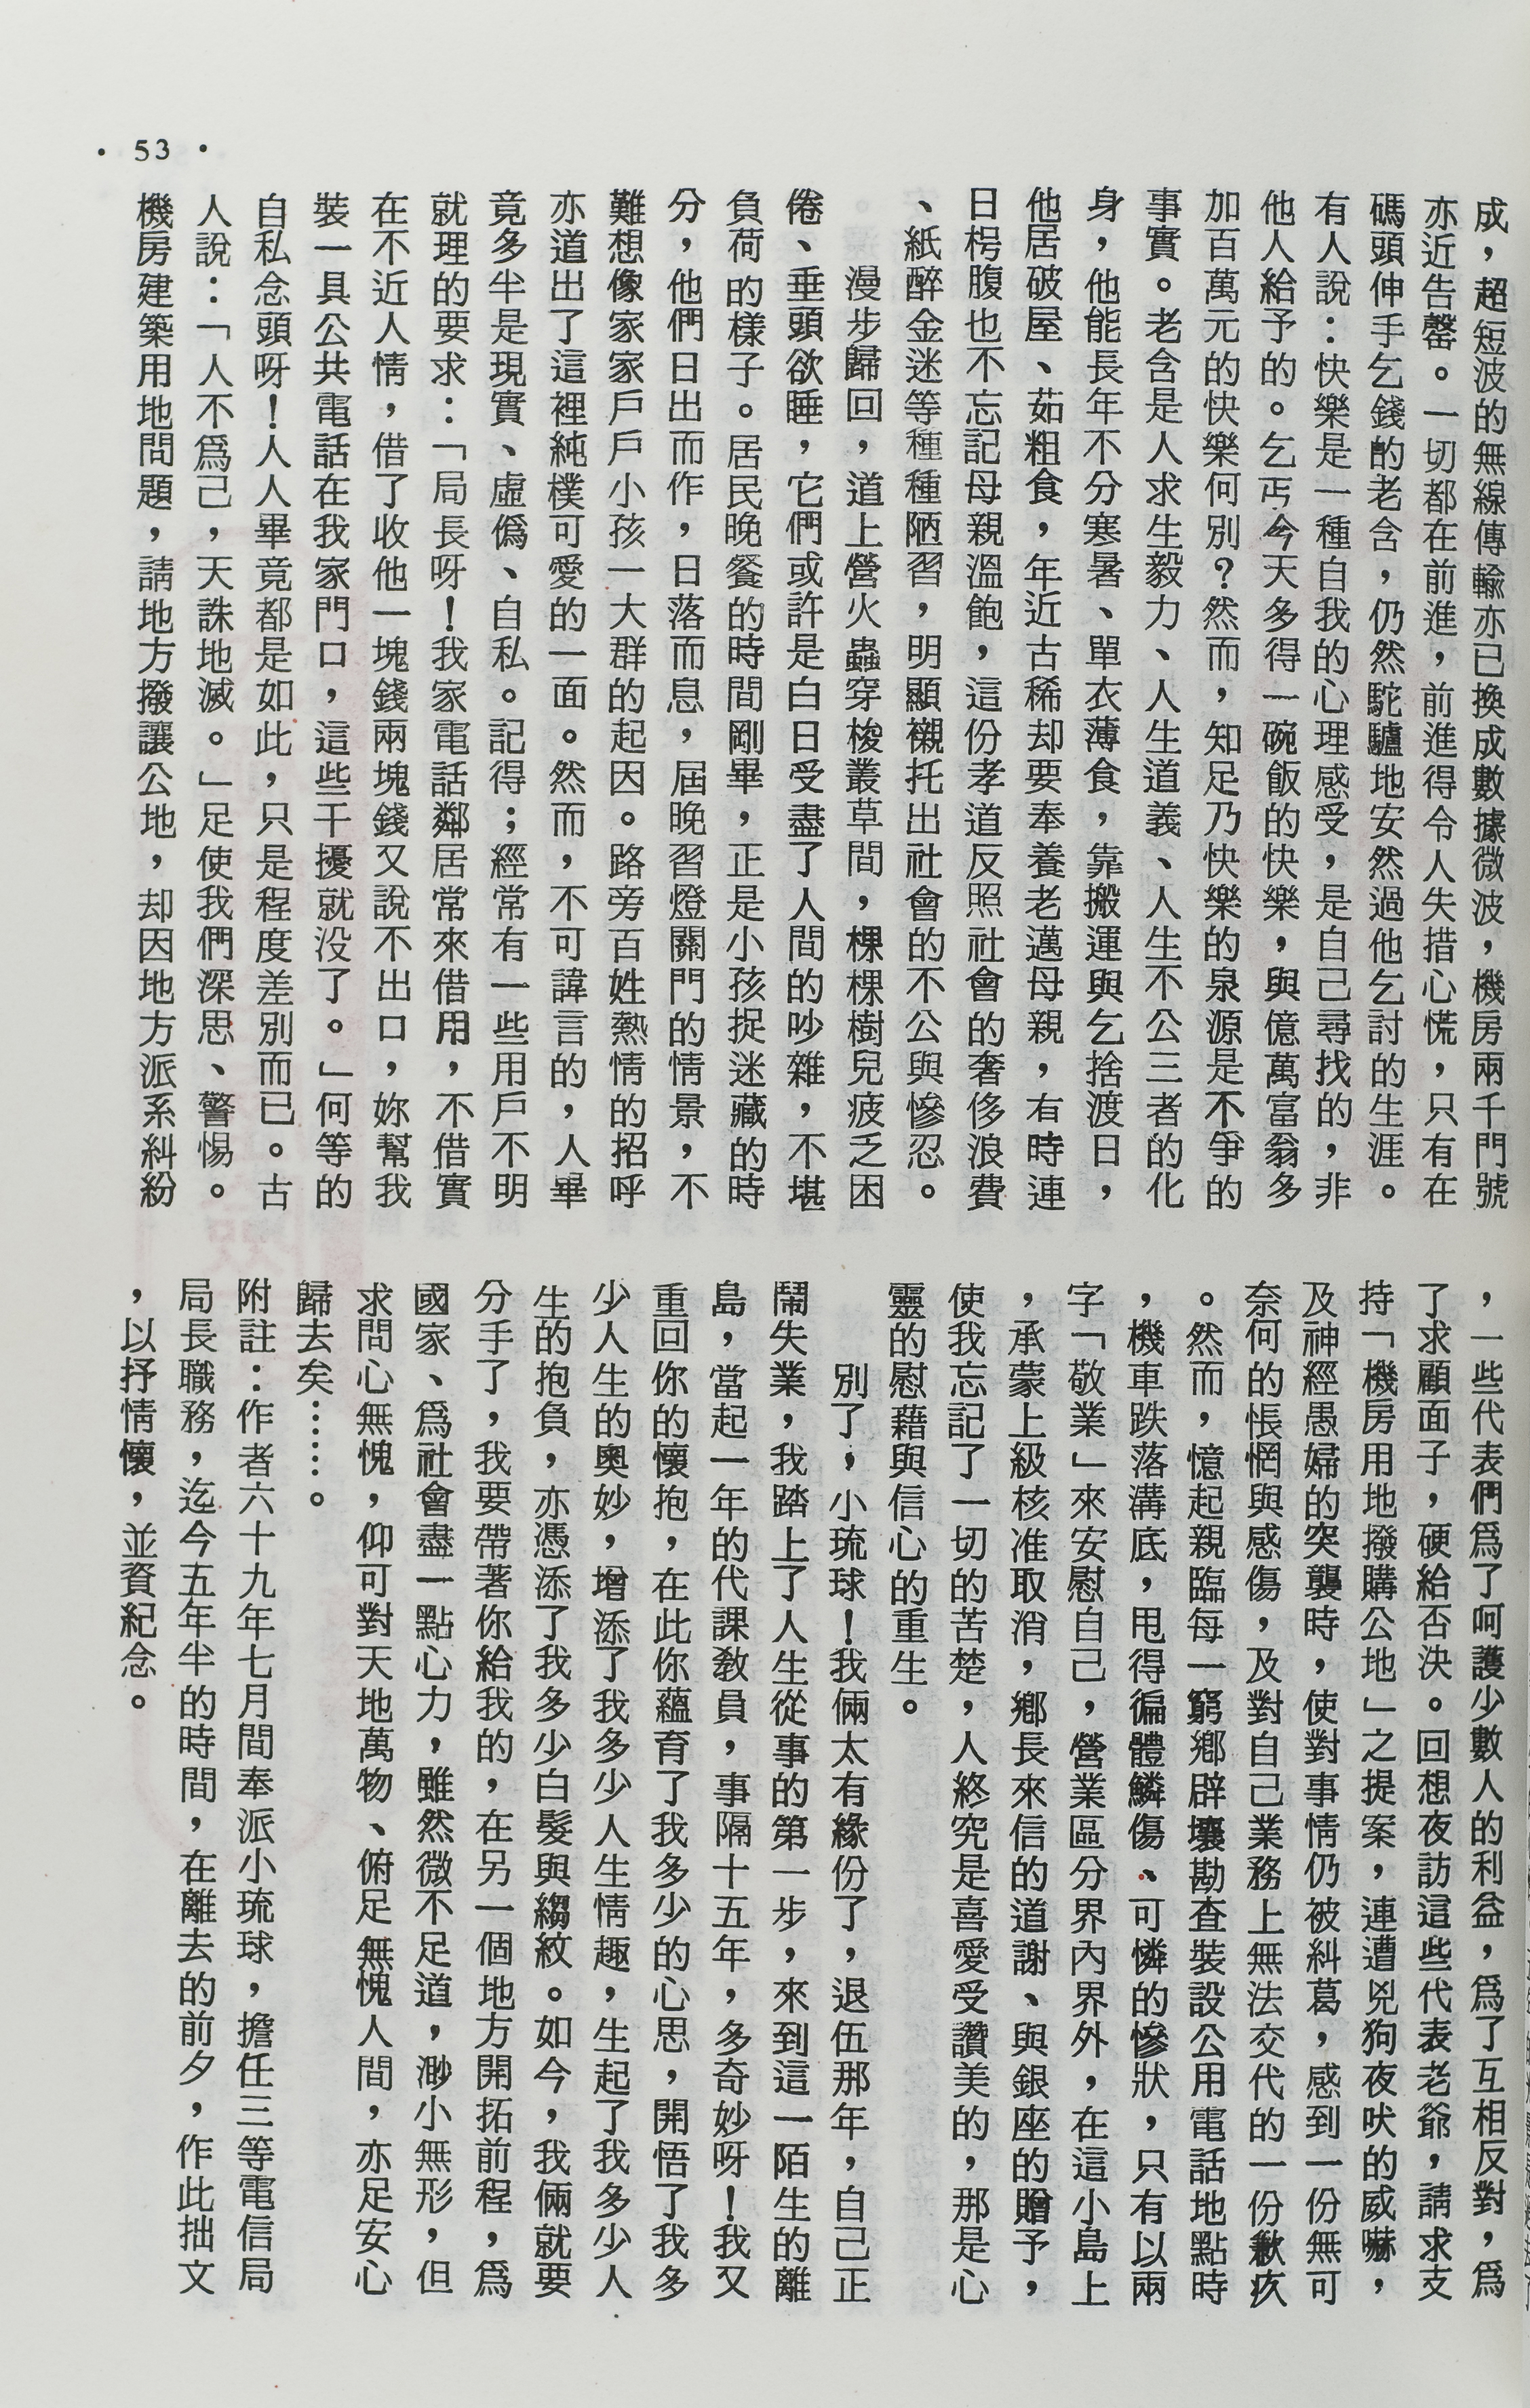 成，超短波的無線傳輸亦已換成數據微波，機房兩千門號
亦近告罄。一切都在前進，前進得令人失措心慌，只有在
碼頭伸手乞錢的老含，仍然駝驢地安然過他乞討的生涯。
有人說：快樂是一種自我的心理感受，是自己尋找的，非
他人給予的。乞丐今天多得一碗飯的快樂，與億萬富翁多
加百萬元的快樂何別？然而，知足乃快樂的泉源是不爭的
事實。老含是人求生毅力、人生道義、人生不公三者的化
身，他能長年不分寒暑、單衣薄食，靠搬運與乞捨渡日，
他居破屋、茹粗食，年近古稀却要奉養老邁母親，有時連
日枵腹也不忘記母親溫飽，這份孝道反照社會的奢侈浪費
、紙醉金迷等種種陋習，明顯襯托出社會的不公與慘忍。
漫步歸回，道上螢火蟲穿梭叢草間，棵棵樹兒疲乏困
倦、垂頭欲睡，它們或許是白日受盡了人間的吵雜，不堪
負荷的樣子。居民晚餐的時間剛畢，正是小孩捉迷藏的時
分，他們日出而作，日落而息，屆晚習燈關門的情景，不
難想像家家戶戶小孩一大群的起因。路旁百姓熱情的招呼
亦道出了這裡純樸可愛的一面。然而，不可諱言的，人畢
竟多半是現實、虛僞、自私。記得；經常有一些用戶不明
就理的要求：「局長呀！我家電話鄰居常來借用，不借實
在不近人情，借了收他一塊錢兩塊錢又說不出口，妳幫我
裝一具公共電話在我家門口，這些干擾就没了。」何等的
自私念頭呀！人人畢竟都是如此，只是程度差別而已。古
人說：「人不爲己，天誅地滅。」足使我們深思、警惕。
機房建築用地問題，請地方撥讓公地，却因地方派系糾紛
，一些代表們爲了呵護少數人的利益，爲了互相反對，爲
了求顧面子，硬給否決。回想夜訪這些代表老爺，請求支
持「機房用地撥購公地」之提案，連遭兇狗夜吠的威嚇，
及神經愚婦的突襲時，使對事情仍被糾葛，感到一份無可
奈何的悵惘與感傷，及對自己業務上無法交代的一份歉疚
。然而，憶起親臨每一窮鄉辟壤勘查裝設公用電話地點時
，機車跌落溝底，甩得徧體鱗傷、可憐的慘狀，只有以兩
字「敬業」來安慰自己，營業區分界內界外，在這小島上
，承蒙上級核准取消，鄉長來信的道謝、與銀座的贈予，
使我忘記了一切的苦楚，人終究是喜愛受讚美的，那是心
靈的慰藉與信心的重生。
別了，小琉球！我倆太有緣份了，退伍那年，自己正
鬧失業，我踏上了人生從事的第一步，來到這一陌生的離
島，當起一年的代課敎員，事隔十五年，多奇妙呀！我又
重回你的懷抱，在此你蘊育了我多少的心思，開悟了我多
少人生的奧妙，增添了我多少人生情趣，生起了我多少人
生的抱負，亦憑添了我多少白髮與縐紋。如今，我倆就要
分手了，我要帶著你給我的，在另一個地方開拓前程，爲
國家、爲社會盡一點心力，雖然微不足道，渺小無形，但
求問心無愧，仰可對天地萬物、俯足無愧人間，亦足安心
歸去矣……。
附註：作者六十九年七月間奉派小琉球，擔任三等電信局
局長職務，迄今五年半的時間，在離去的前夕，作此拙文
，以抒情懷，並資紀念。
• 53 •